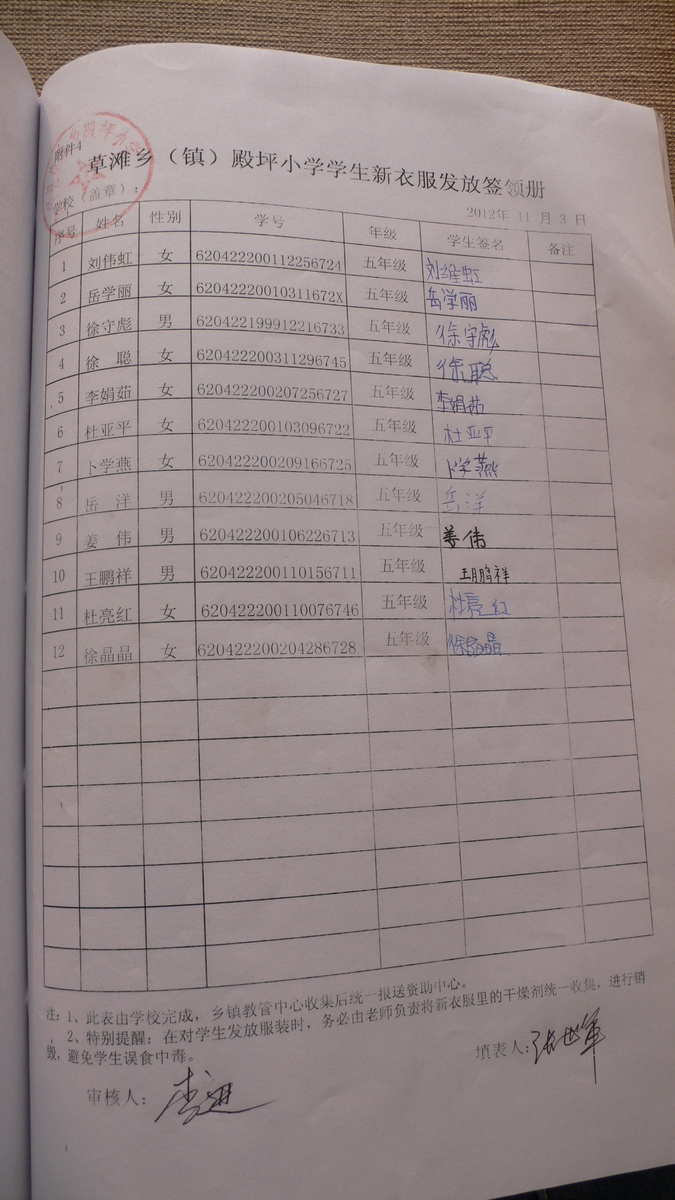 附件4
草滩乡（镇）殿坪小学学生新衣服发放签领册
学校（盖章）：
2012年 11 月 3 日
序号 姓名 性别 学号 年级 学生签名 备注
1 刘伟虹 女 620422200112256724 五年级 刘维虹
2 岳学丽 女 62042220010311672X 五年级 岳学丽
3 徐守彪 男 620422199912216733 五年级 徐守彪
4 徐 聪 女 620422200311296745 五年级 徐聪
5 李娟茹 女 620422200207256727 五年级 李娟茹
6 杜亚平 女 620422200103096722 五年级 杜亚平
7 卜学燕 女 620422200209166725 五年级 卜学燕
8 岳 洋 男 620422200205046718 五年级 岳洋
9 姜 伟 男 620422200106226713 五年级 姜伟
10 王鹏祥 男 620422200110156711 五年级 王鹏祥
11 杜亮红 女 620422200110076746 五年级 杜亮红
12 徐晶晶 女 620422200204286728 五年级 徐晶晶
注：1、此表由学校完成，乡镇教管中心收集后统一报送资助中心。
2、特别提醒：在对学生发放服装时，务必由老师负责将新衣服里的干燥剂统一收集，进行销
毁，避免学生误食中毒。
填表人：张世军
审核人：李进